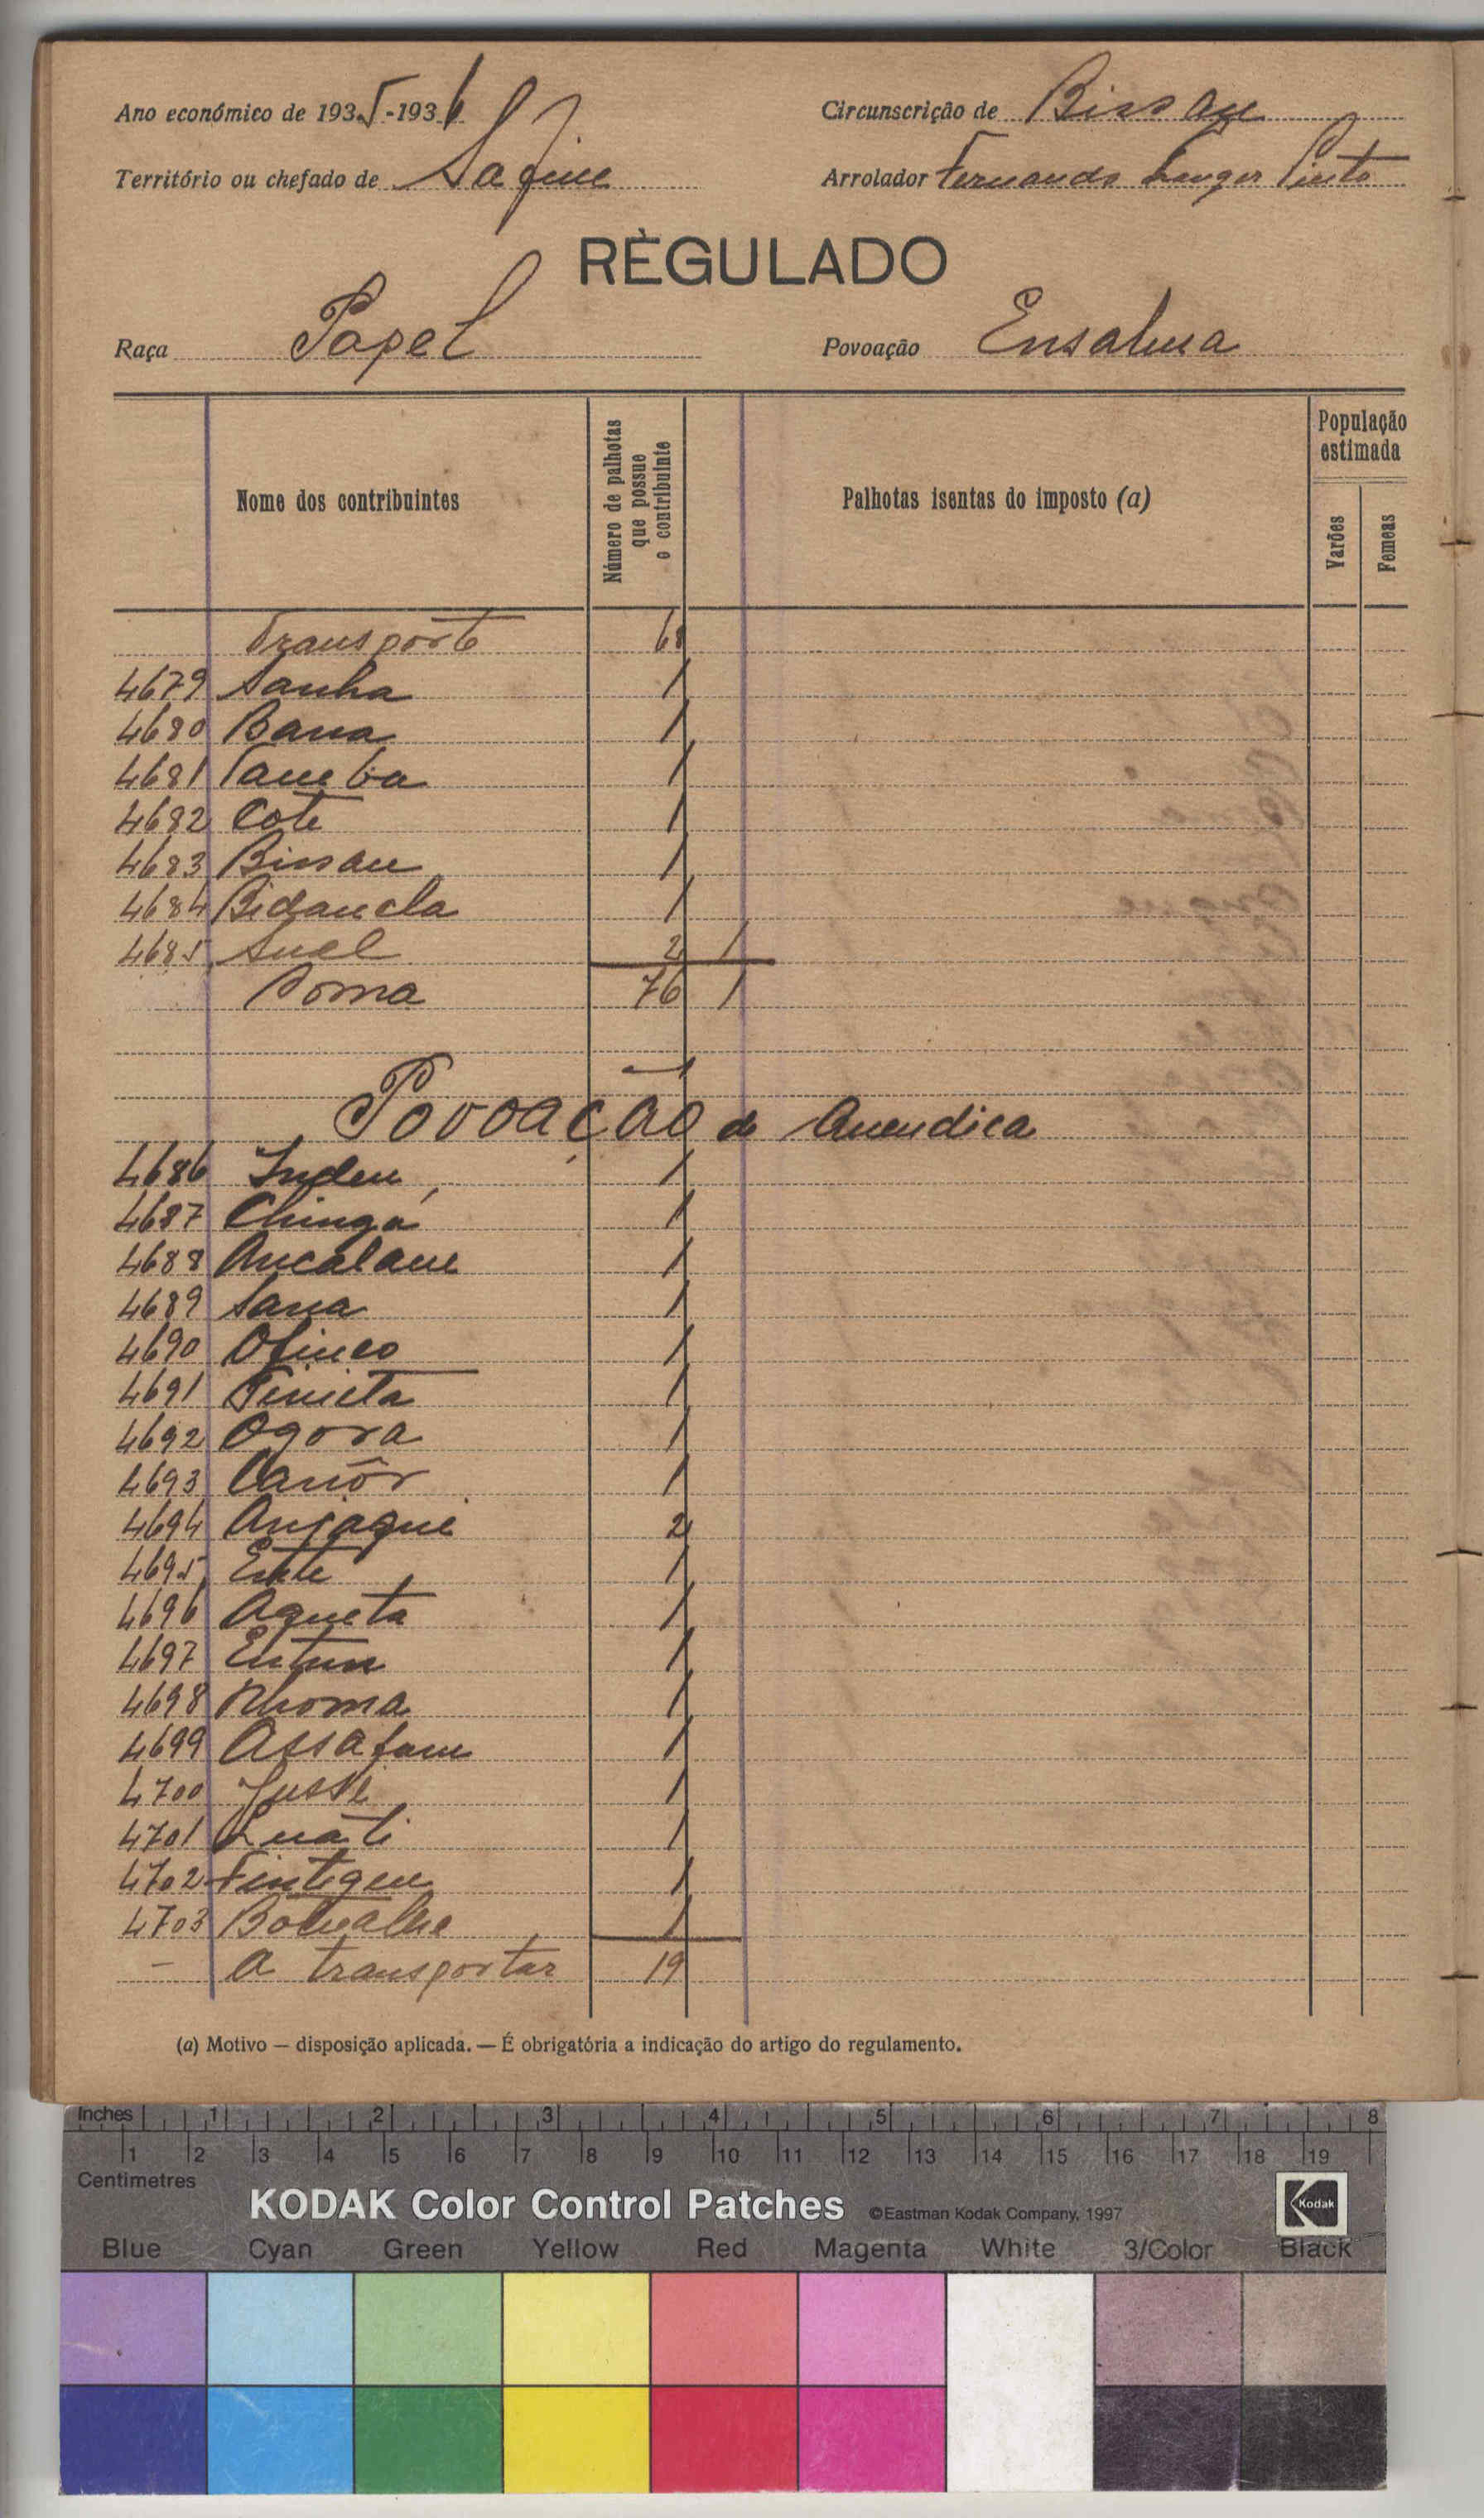 Ano económico de 1935-1936
Circunscrição de Bissau
Território ou chefado de Safim
Arrolador Fernando Pinto
RÈGULADO
Raça Papel
Povoação Ensalma
Nome dos contribuintes
Número de palhotas que possue o contribuinte
Palhotas isentas do imposto (a)
População estimada
Varões
Femeas
Transporte 68
4679 Sanha 1
4680 Bana 1
4681 1
4682 Cote 1
4683 Bissau 1
4684 1
4685 Suel 2 1
Soma 76 1
Povoação de
4686 Indeu 1
4687 Chinga 1
4688 Ancalane 1
4689 Sana 1
4690 1
4691 1
4692 Ogora 1
4693 Canôr 1
4694 Anjaque 2
4695 1
4696 Aqueta 1
4697 1
4698 Nhoma 1
4699 1
4700 Jusse 1
4701 1
4702 1
4703 1
— A transportar 19
(a) Motivo — disposição aplicada. — É obrigatória a indicação do artigo do regulamento.
Inches 1 2 3 4 5 6 7 8
1 2 3 4 5 6 7 8 9 10 11 12 13 14 15 16 17 18 19
Centimetres
KODAK Color Control Patches ©Eastman Kodak Company, 1997 Kodak
Blue Cyan Green Yellow Red Magenta White 3/Color Black